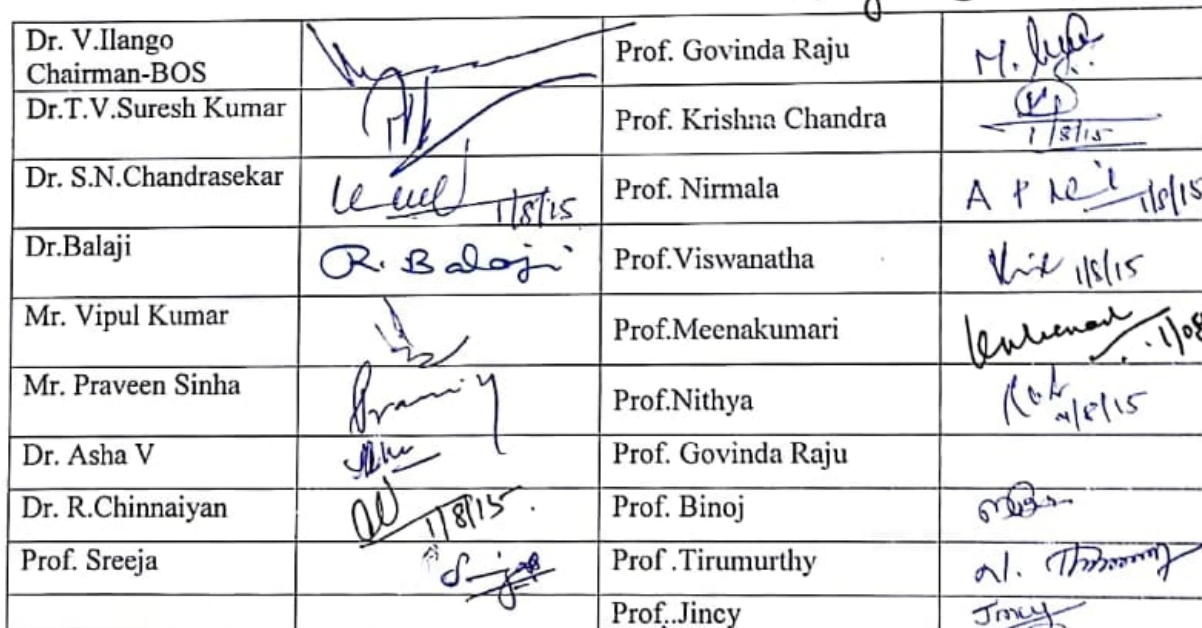 Dr. V.Ilango
Chairman-BOS
Prof. Govinda Raju
M.
Dr.T.V.Suresh Kumar
Prof. Krishna Chandra
1/8/15
Dr. S.N.Chandrasekar
1/8/15
Prof. Nirmala
1/8/15
Dr.Balaji
R. Balaji
Prof.Viswanatha
1/8/15
Mr. Vipul Kumar
Prof.Meenakumari
1/08
Mr. Praveen Sinha
Prof.Nithya
1/8/15
Dr. Asha V
Prof. Govinda Raju
Dr. R.Chinnaiyan
1/8/15
Prof. Binoj
Prof. Sreeja
Prof .Tirumurthy
Prof..Jincy
Jincy